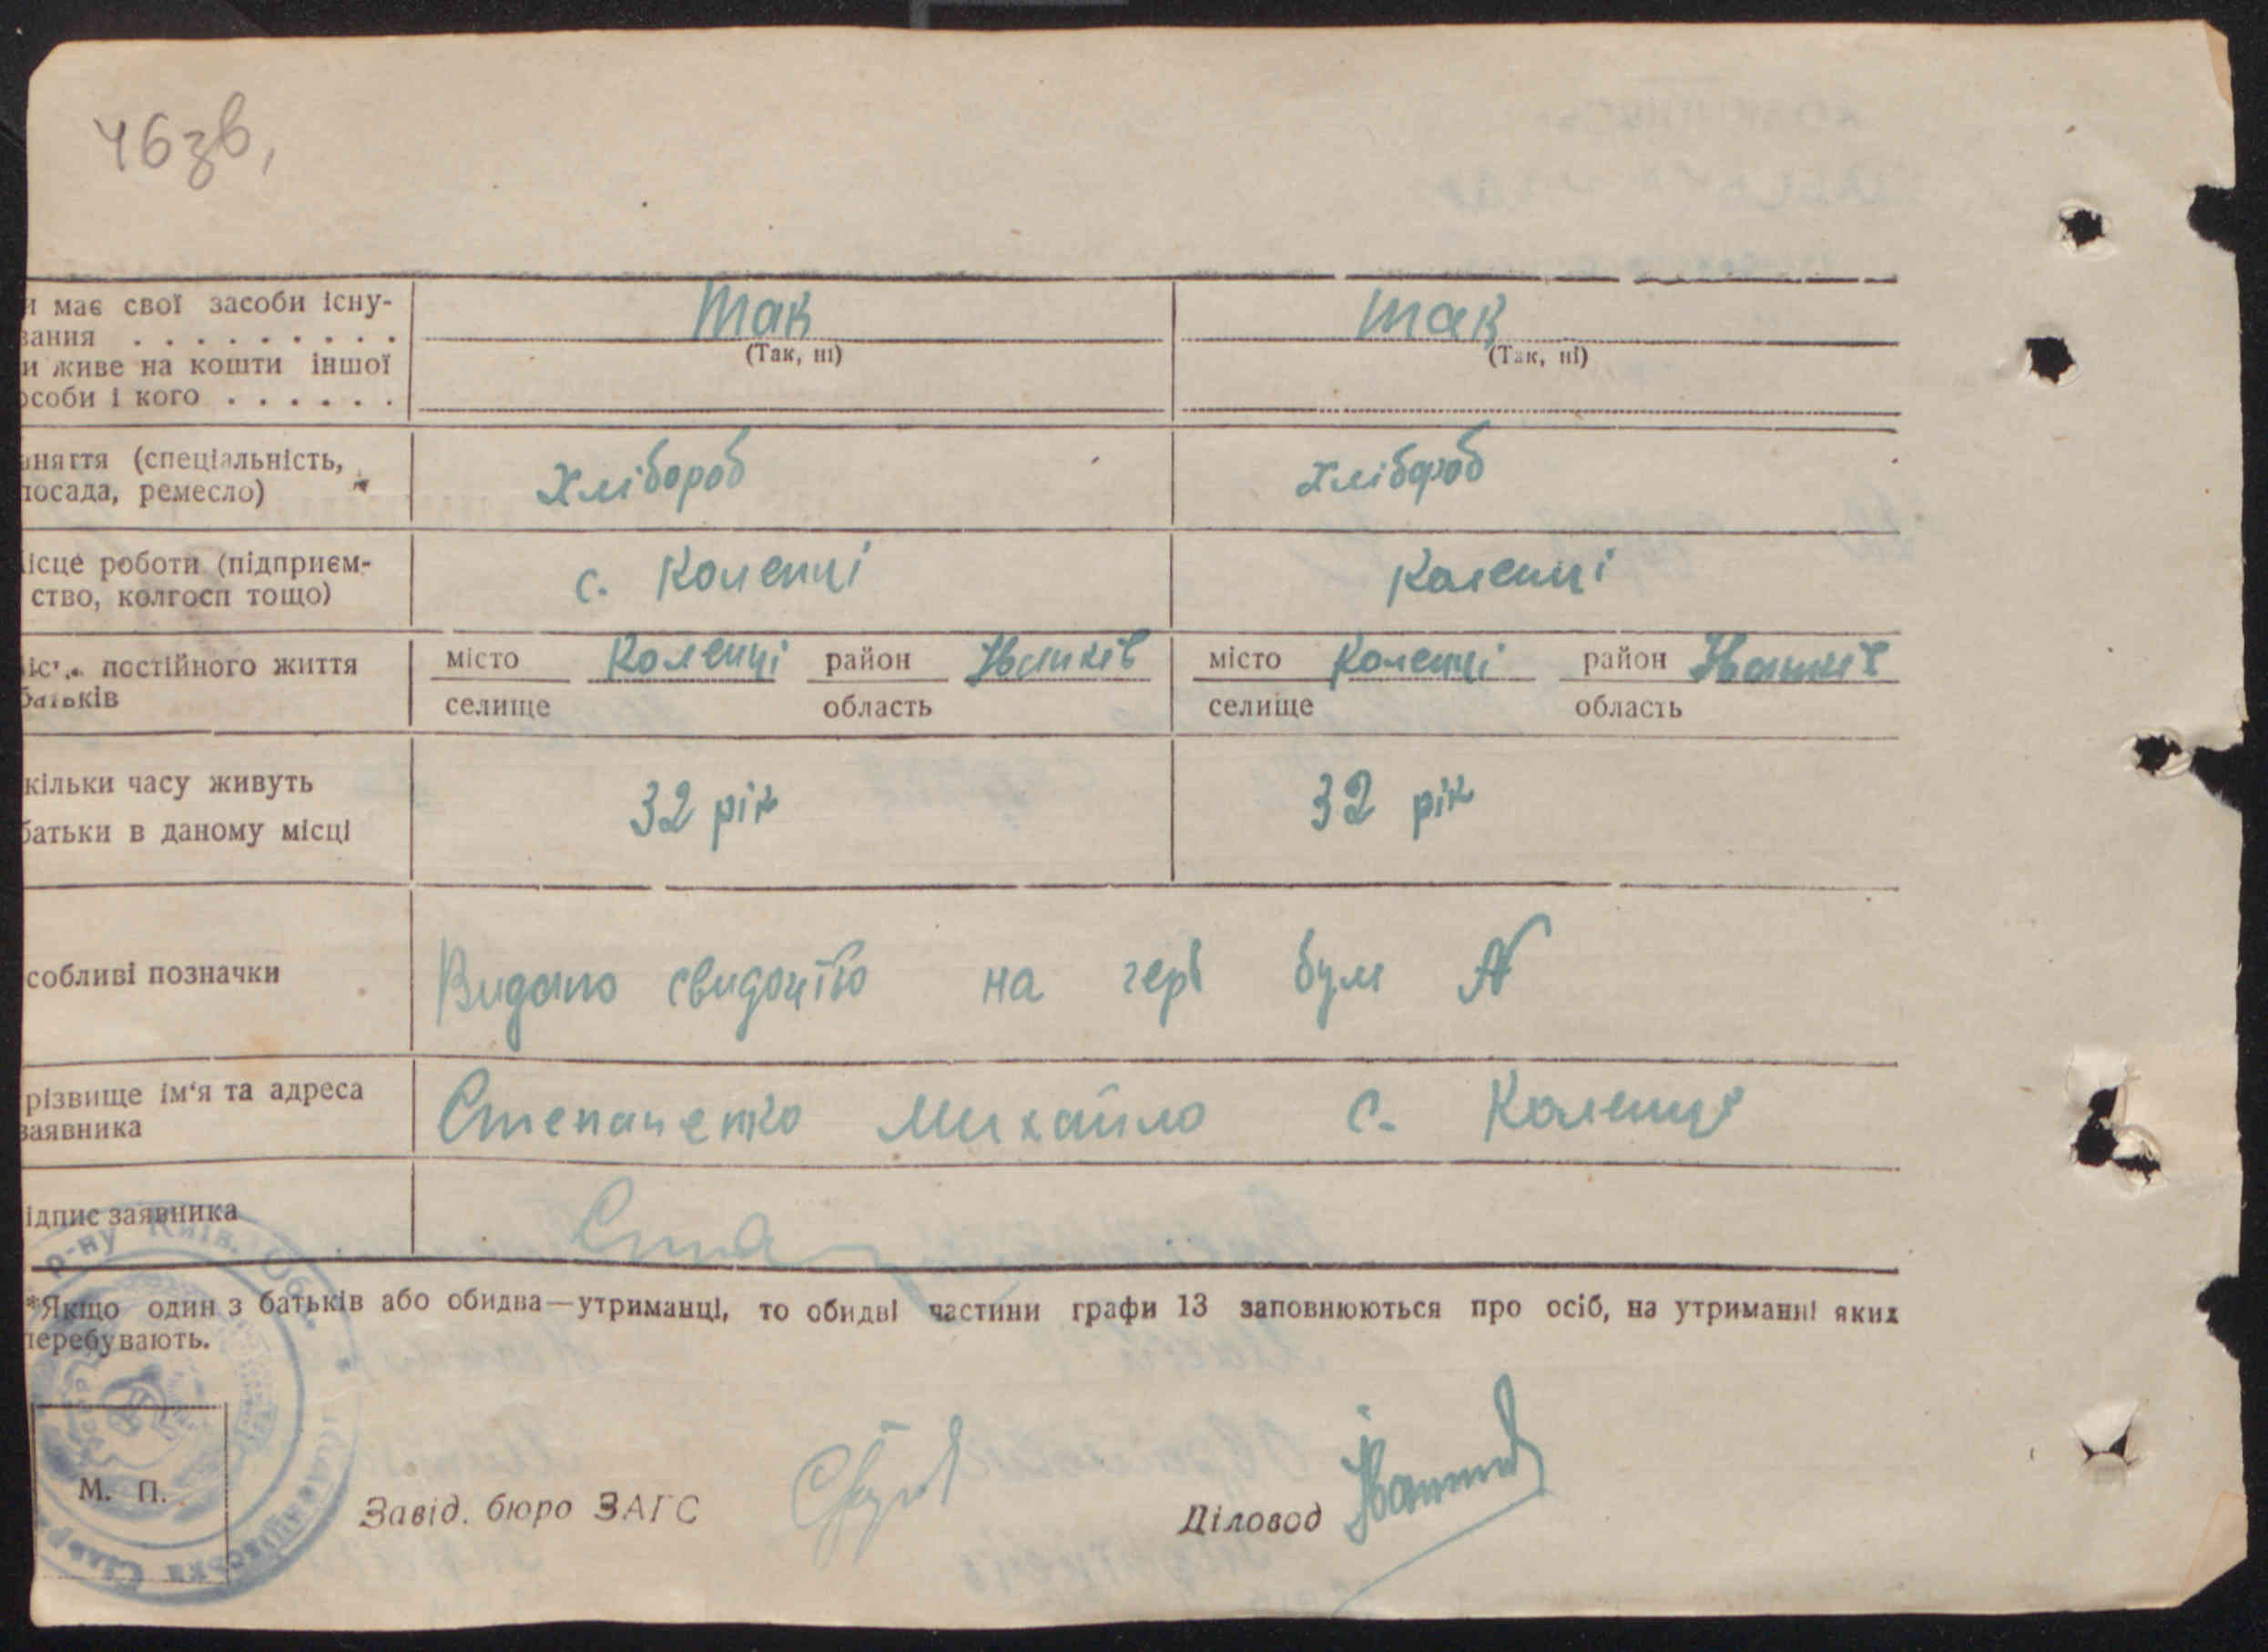 46зв,
и має свої засоби існу- Так Так
вання . . . . . . . . . (Так, ні) (Так, ні)
и живе на кошти іншої
особи і кого . . . . . .
аняття (спеціальність, Хлібороб Хлібороб
посада, ремесло)
ісце роботи (підприєм- с. Коленці Коленці
ство, колгосп тощо)
іс постійного життя місто Коленці район Іванків місто Коленці район Іванків
батьків селище область селище область
кільки часу живуть 32 рік 32 рік
батьки в даному місці
собливі позначки Видано свидоцтво на герб бум №
різвище ім'я та адреса Степаненко Михайло с. Коленці
заявника
ідпис заявника
*Якщо один з батьків або обидва—утриманці, то обидві частини графи 13 заповнюються про осіб, на утриманні яких
перебувають.
р-ну Київ. Обл.
М. П. Завід. бюро ЗАГС Діловод